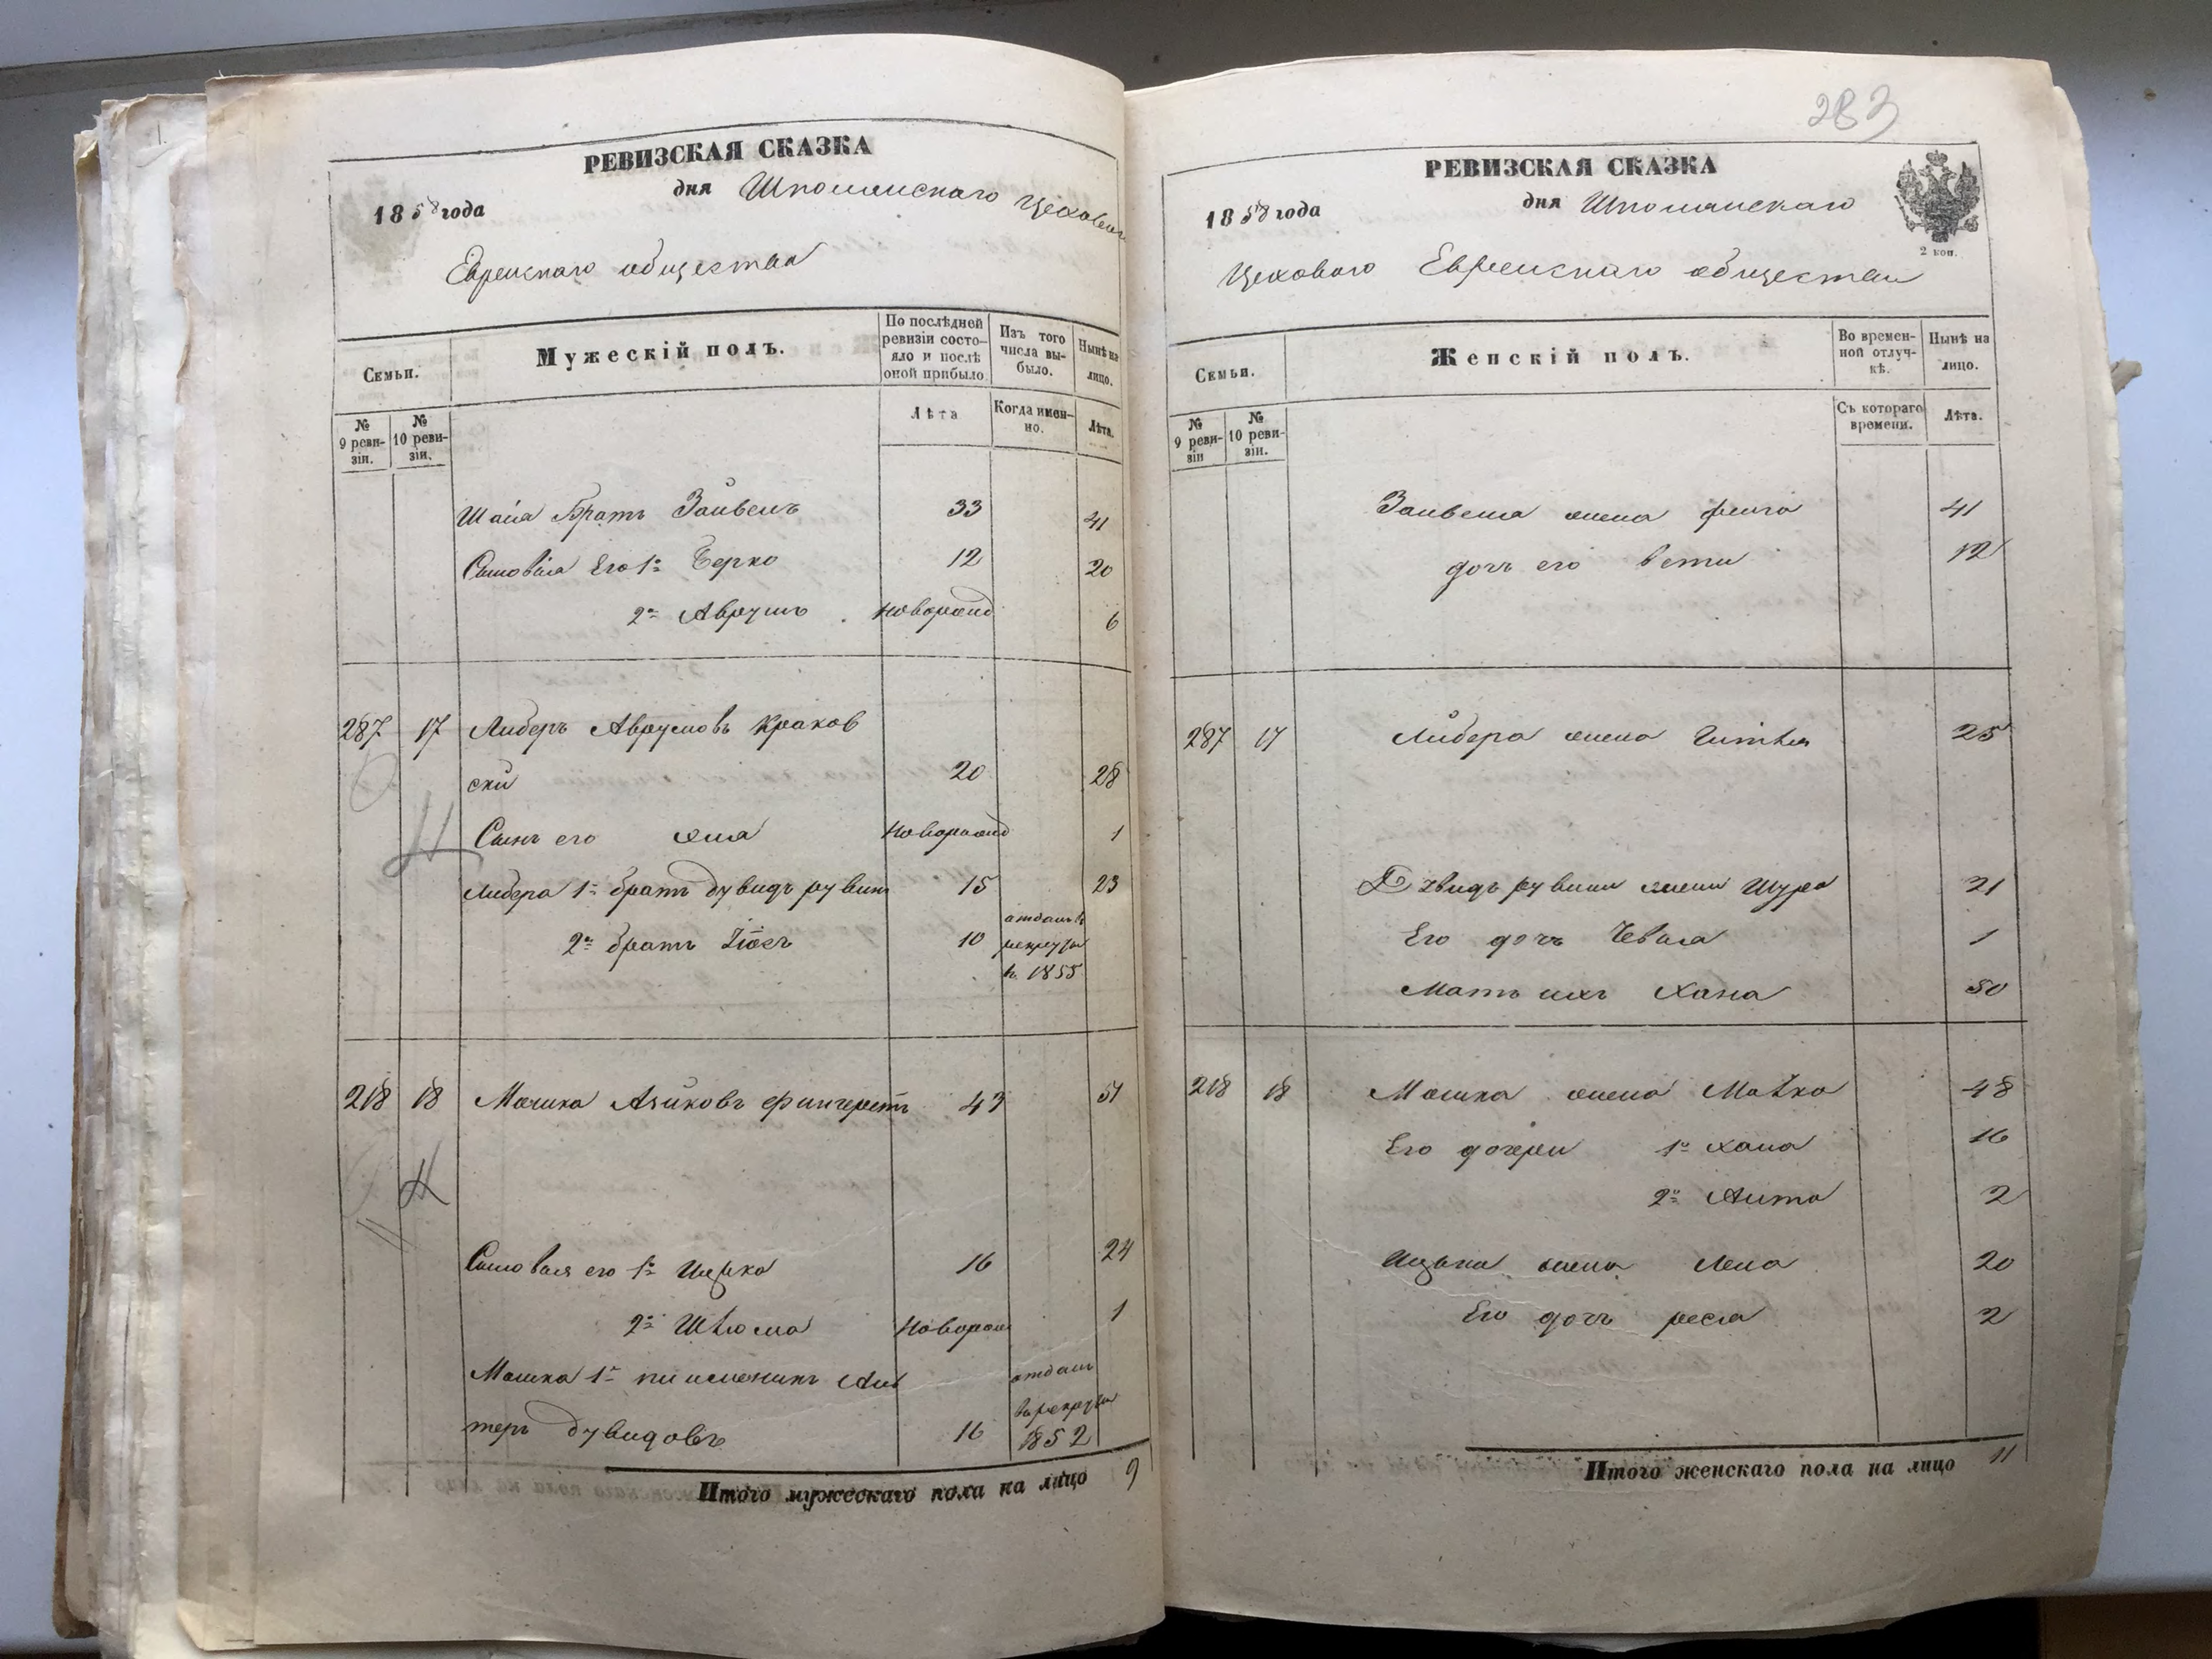 РЕВИЗСКАЯ СКАЗКА
1858 года дня Шполянскаго Цеховаго
Еврейскаго общества
Семьи.
Мужескій полъ.
По послѣдней ревизіи состояло и послѣ оной прибыло
Изъ того числа выбыло.
Нынѣ на лицо.
№ 9 ревизіи.
№ 10 ревизіи.
Лѣта
Когда именно.
Лѣта.
Шаія братъ Зайвель 33 41
Сыновья его 1й Берко 12 20
2й Аврумъ новорожд 6
287 17 Либеръ Аврумовъ Краков
скій 20 28
Сынъ его новорожд 1
Либера 1й братъ Дувидъ рувин 15 23
2й братъ Іосъ 10 отданъ в рекруты в 1855
218 18 Мошко Айзиковъ 43 51
Сыновья его 1й Ицько 16 24
2й Шлюма новорож 1
Мошка 1й племяникъ Аль
теръ Дувидовъ 16 отданъ в рекруты 1852
Итого мужескаго пола на лицо 9
283
РЕВИЗСКАЯ СКАЗКА
1858 года дня Шполянскаго
Цеховаго Еврейскаго общества
2 коп.
Семьи.
Женскій полъ.
Во временной отлучкѣ.
Нынѣ на лицо.
№ 9 ревизіи
№ 10 ревизіи.
Съ котораго времени.
Лѣта.
Зайвеля жена фейга 41
дочь его 12
287 17 Либера жена Гитля 25
Дувидъ рувина жена Шура 21
Его дочь 1
Мать ихъ Хана 50
218 18 Мошка жена Малка 48
Его дочери 1я хана 16
2я 2
Ицька жена 20
Его дочь 2
Итого женскаго пола на лицо 11